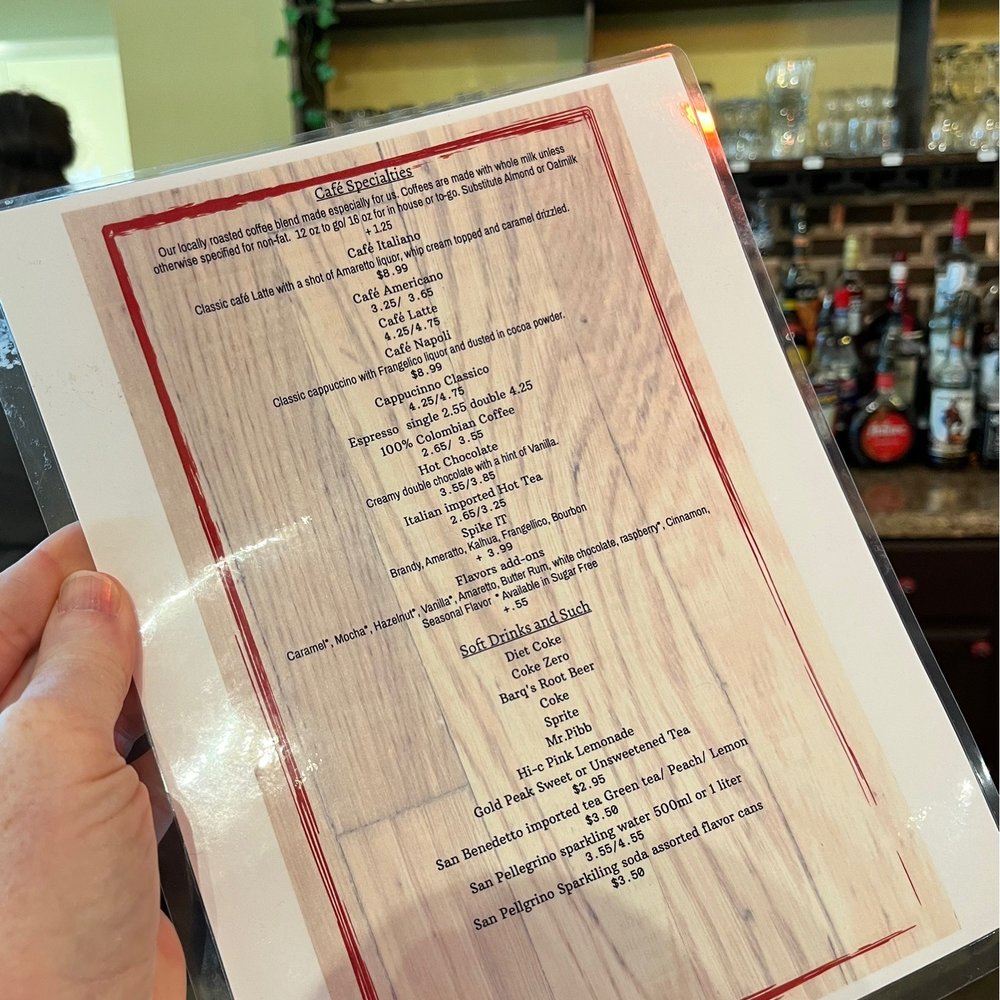 Café Specialties
Our locally roasted coffee blend made especially for us. Coffees are made with whole milk unless
otherwise specified for non-fat. 12 oz to go/ 16 oz for in house or to-go. Substitute Almond or Oatmilk
+ 1.25
Café Italiano
Classic café Latte with a shot of Amaretto liquor, whip cream topped and caramel drizzled.
$8.99
Café Americano
3.25/ 3.65
Café Latte
4.25/4.75
Café Napoli
Classic cappuccino with Frangelico liquor and dusted in cocoa powder.
$8.99
Cappucinno Classico
4.25/4.75
Espresso single 2.55 double 4.25
100% Colombian Coffee
2.65/ 3.55
Hot Chocolate
Creamy double chocolate with a hint of Vanilla.
3.55/3.85
Italian imported Hot Tea
2.65/3.25
Spike IT
Brandy, Ameratto, Kalhua, Frangellico, Bourbon
+ 3.99
Flavors add-ons
Caramel*, Mocha*, Hazelnut*, Vanilla*, Amaretto, Butter Rum, white chocolate, raspberry*, Cinnamon,
Seasonal Flavor * Available in Sugar Free
+.55
Soft Drinks and Such
Diet Coke
Coke Zero
Barq's Root Beer
Coke
Sprite
Mr.Pibb
Hi-c Pink Lemonade
Gold Peak Sweet or Unsweetened Tea
$2.95
San Benedetto imported tea Green tea/ Peach/ Lemon
$3.50
San Pellegrino sparkling water 500ml or 1 liter
3.55/4.55
San Pellgrino Sparkiling soda assorted flavor cans
$3.50